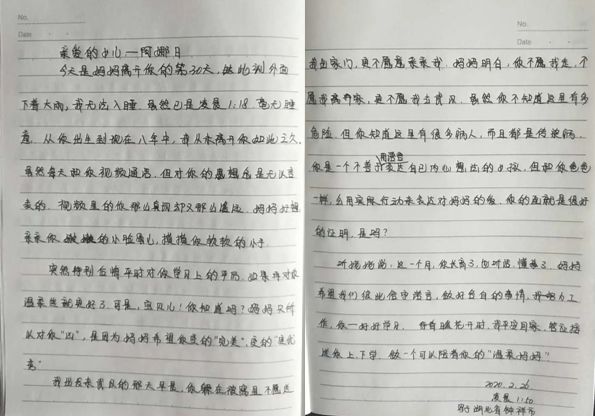 No.
Date
亲爱的女儿—阿娜日
今天是妈妈离开你的第30天,此刻外面
下着大雨,我无法入睡.虽然已是凌晨1:18 毫无睡
意.从你出生到现在八年中,我从未离开你如此之久.
虽然每天和你视频通话,但对你的思想念是无以言
表的.视频里的你那么真现却又那么遥远.妈妈好想
亲亲你嫩嫩的小脸蛋儿,摸摸你软软的小手.
突然特别后悔平时对你学习上的严厉.如果再对你
温柔些就更好了.可是,宝贝儿!你知道吗?妈妈只所
以对你"凶",是因为妈妈希望你变的"完美".变的"更优
秀"
我出发来的那天早晨,你躲在被窝里不愿送
No.
Date
我出家门,更不愿意亲亲我.妈妈明白,你不愿我走,不
愿我离开家,更不愿我去武汉.虽然你不知道这里有多
危险.但你知道这里有很多病人,而且都是传染病.
你是一个不善用语言表达自己内心想法的女孩,但和爸爸
一样,会用实际行动来表达对妈妈的爱.你的画就是很好
的证明,是吗?
听姥姥说:这一个月,你长高了,也听话,懂事了.妈妈
希望我们彼此信守诺言,做好各自的事情,我努力工
作,你一好好学习.待春暖花开时,我平安回家.答应接
送你上、下学.做一个可以陪着你的"温柔妈妈".
2020.2.26
凌晨1:50
于湖北省钟祥市